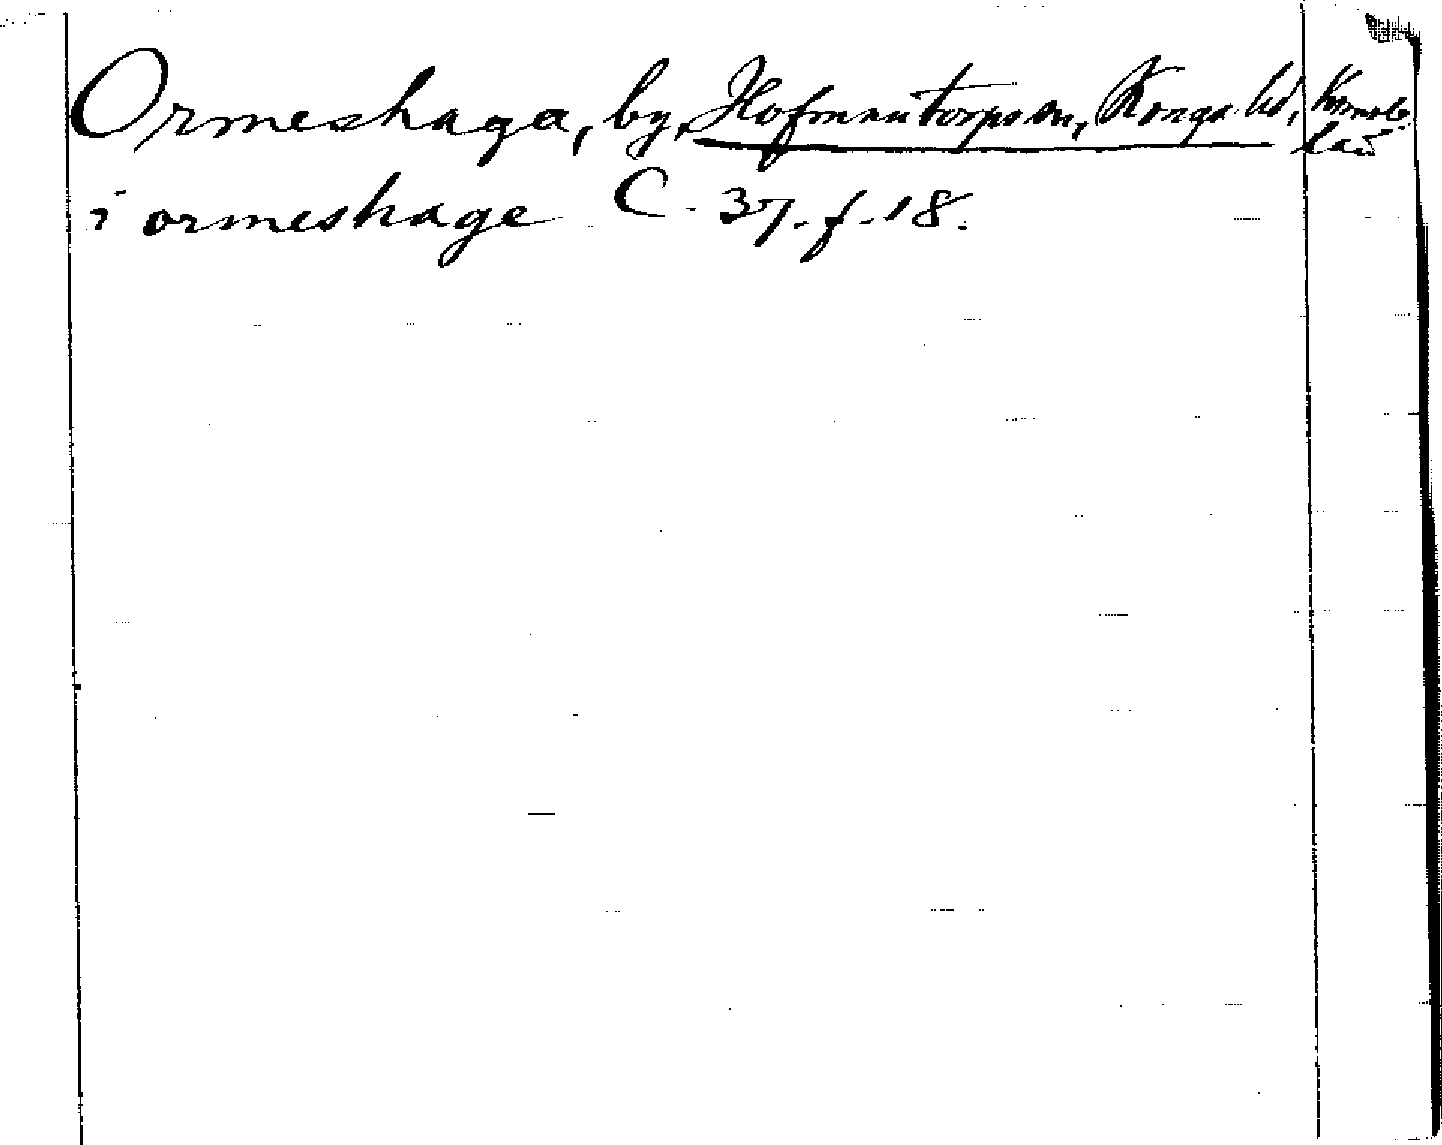 Ormeshaga, by, Hofmantorps sn, Konga hd, Kronob. län
i ormeshage C. 37. f. 18.